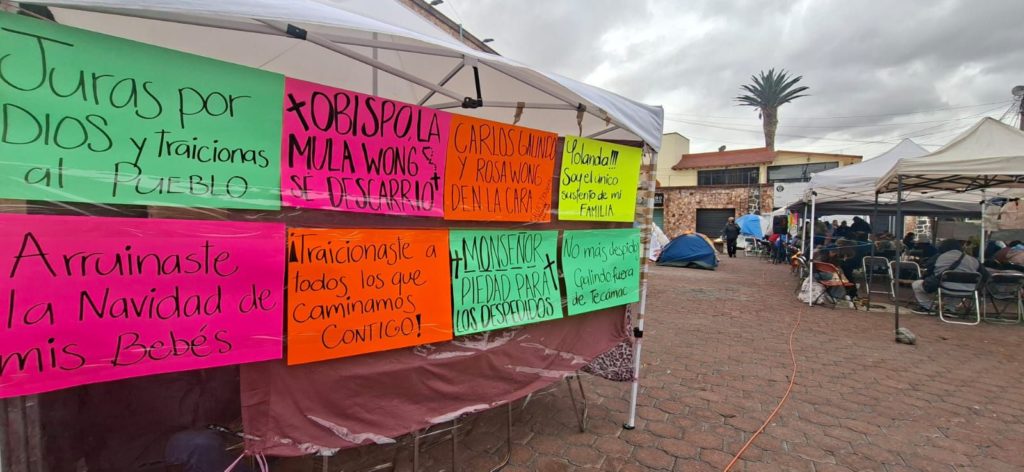 Juras por
DIOS y Traicionas
al PUEBLO
OBISPO LA
MULA WONG
SE DESCARRIO
CARLOS GALINDO
Y ROSA WONG
DEN LA CARA
Yolanda!!!
Soy el único
sustento de mi
FAMILIA
Arruinaste
la Navidad de
mis Bebés
¡Traicionaste a
todos los que
caminamos
CONTIGO!
MONSEÑOR
PIEDAD PARA
LOS DESPEDIDOS
No más despido
Galindo fuera
de Tecamac